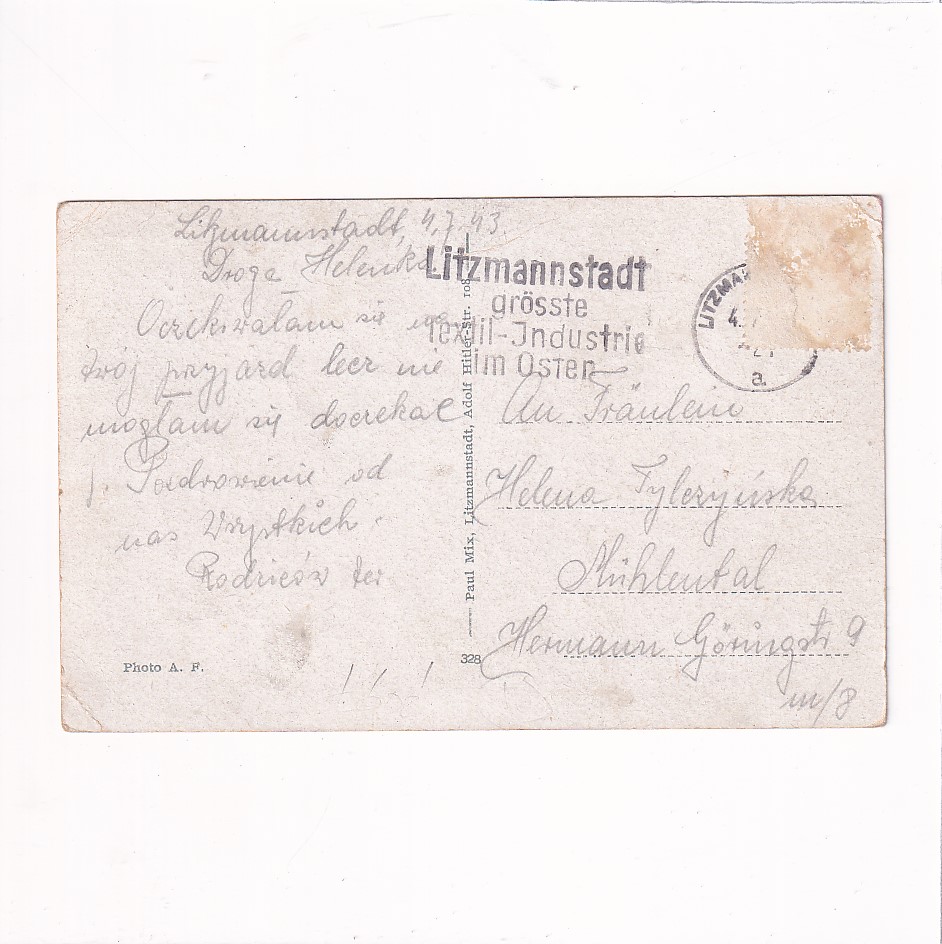 Litzmannstadt, 4.7.43.
Droga Helenka.
Oczekiwalam się na
twój przyjazd lecz nie
mogłam się doczekac
Pozdrowienie od
nas Wszystkich.
Rodziców ter
Photo A. F.
Litzmannstadt
grösste
Textil-Industrie
im Osten
LITZMAN
a
328
Paul Mix, Litzmannstadt, Adolf Hitler-Str. 108
An Fräulein
Helena Tylczyńska
Mühlental
Hermann Göringstr 9
m/8